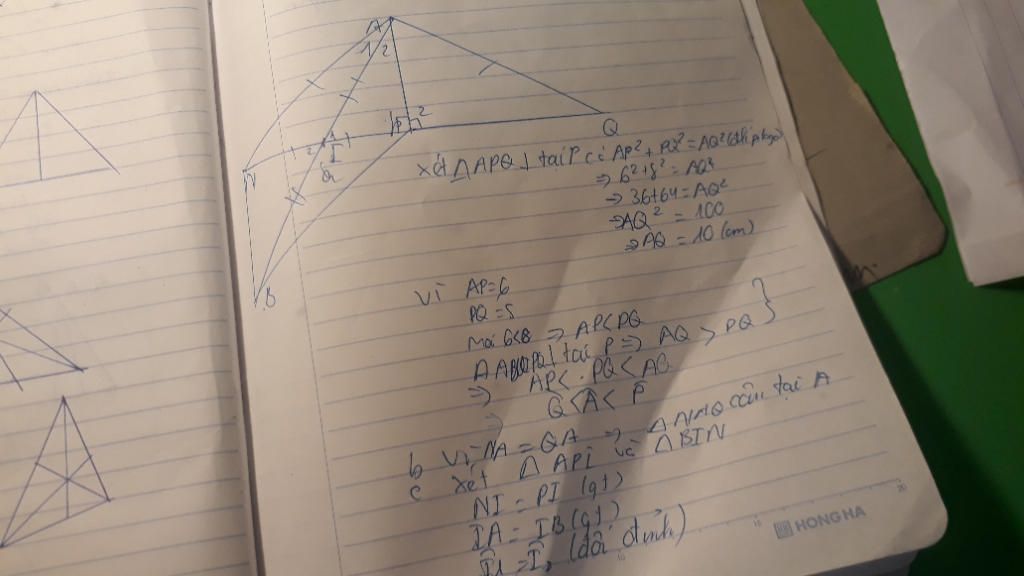 A
1 2
P 2
Q
1
2
I
N
B
xét △APQ ⊥ tại P có AP² + PQ² = AQ²
⇒ 6² + 8² = AQ²
⇒ 36+64 = AQ²
⇒ AQ² = 100
⇒ AQ = 10 (cm)
Vì AP=6
PQ = 5
mà 6<8 ⇒ AP<PQ
⊥ tại P ⇒ AQ > PQ }
⇒ AP < PQ < AQ
Q̂ < Â < P̂
b Vì NA = QA ⇒ △NAQ cân tại A
c xét △ API và △BIN
NI = PI (gt)
IA = IB (gt)
(đối đỉnh)
HONG HA
15
20